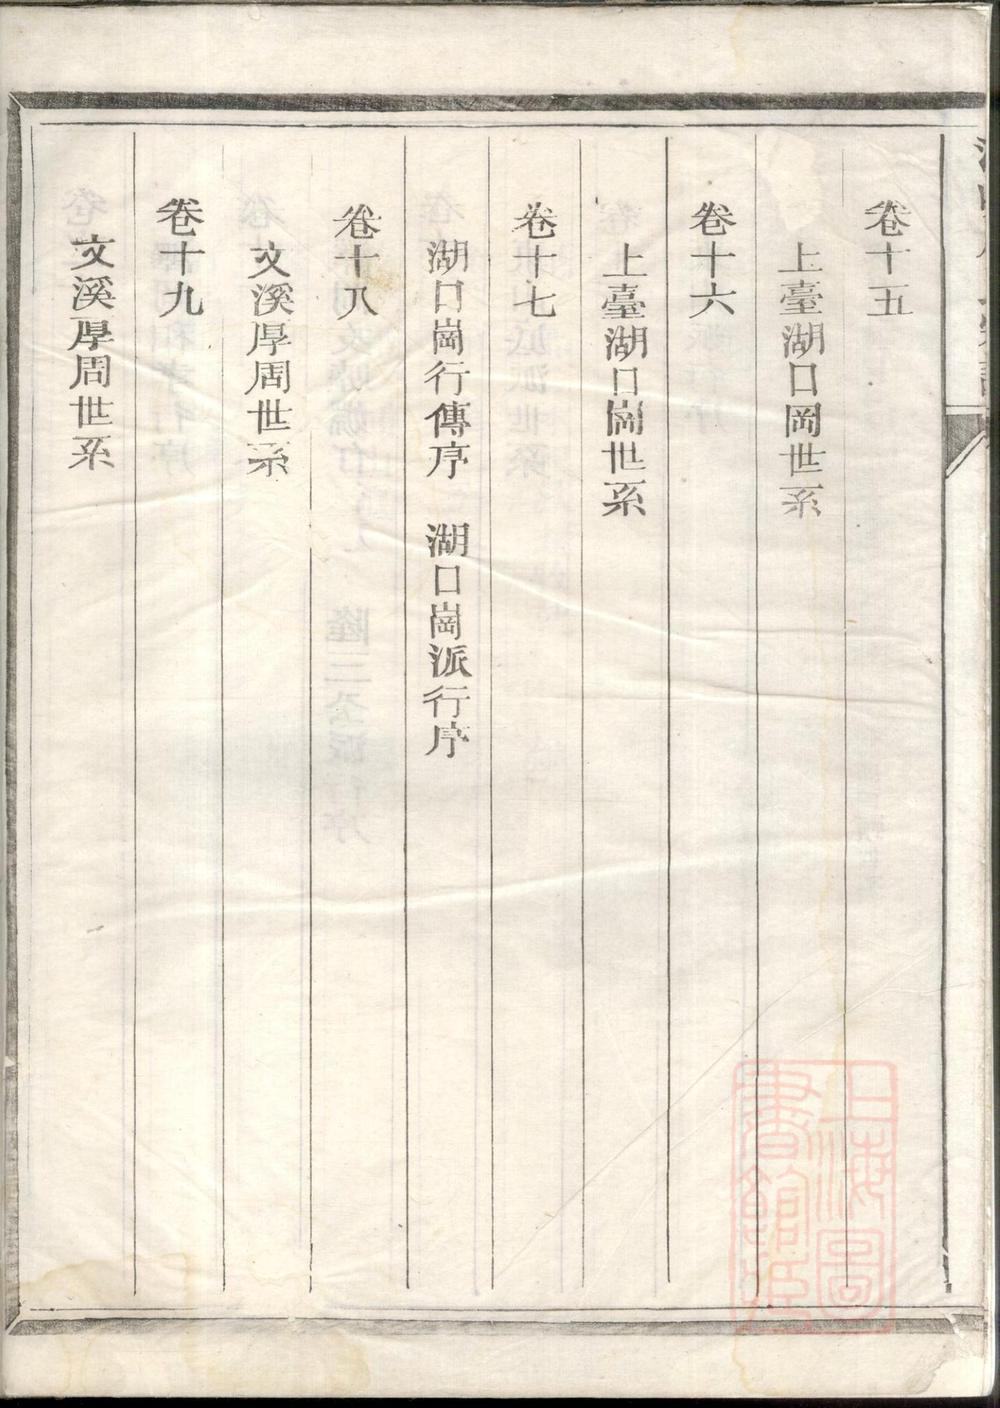 卷十五
上臺湖口岡世系
卷十六
上臺湖口崗世系
卷十七
湖口崗行傳序　湖口崗派行序
卷十八
文溪厚周世系
卷十九
文溪厚周世系
上海圖書館藏